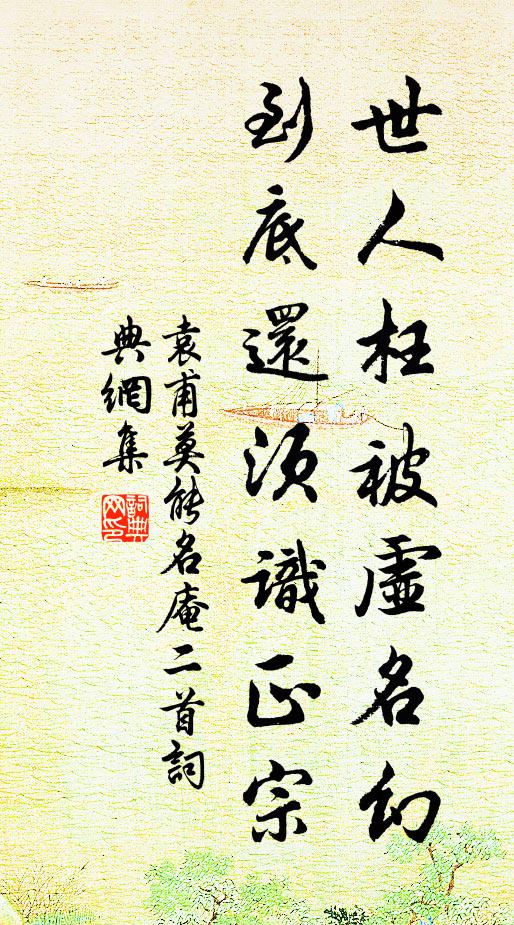 世人枉被虛名幻
到底還須識正宗
袁甫莫能名庵二首詞
典網集
詞典
网印